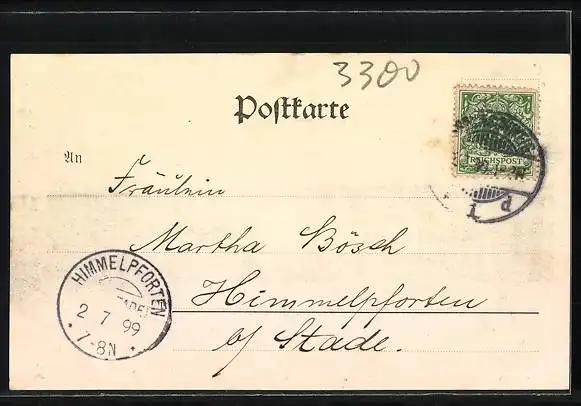 3300
Postkarte
REICHSPOST
An
Fräulein
Martha Bösch
Himmelpforten
b/ Stade.
HIMMELPFORTEN
2 7 99
7-8N
1 d